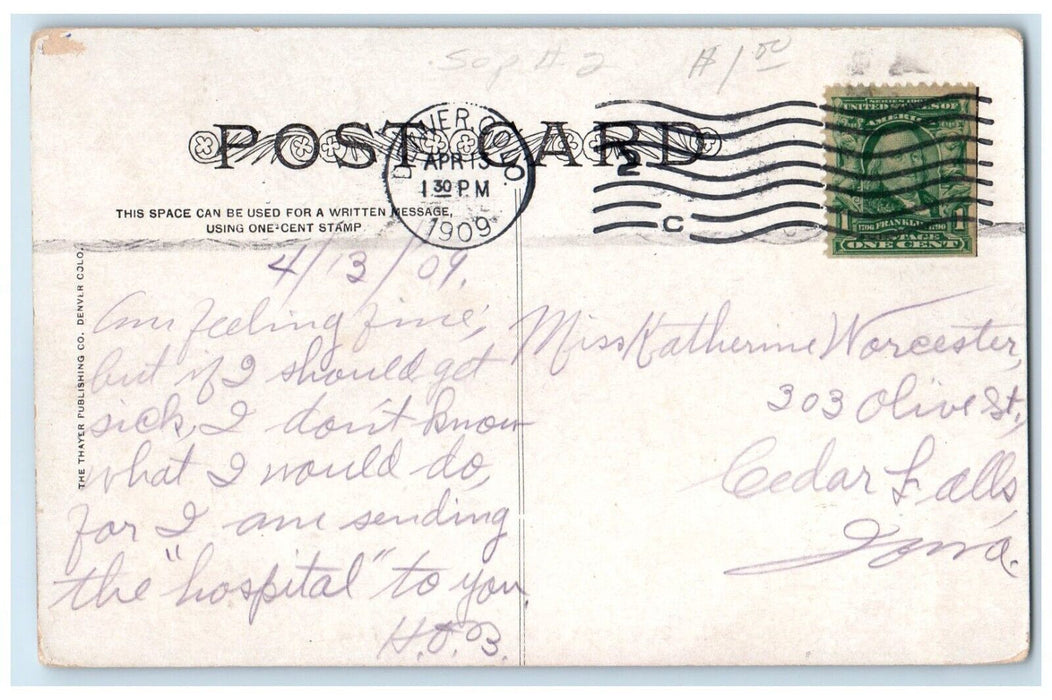 Sop # 2 $1.00
POST CARD
DENVER, COLO.
APR 13
1 30 PM
1909
2
C
SERIES 1902
UNITED STATES OF
AMERICA
1706 FRANKLIN 1790
POSTAGE
1 ONE CENT 1
THIS SPACE CAN BE USED FOR A WRITTEN MESSAGE,
USING ONE-CENT STAMP
THE THAYER PUBLISHING CO. DENVER COLO.
4/13/09.
Am feeling fine,
but if I should get
sick, I don't know
what I would do,
for I am sending
the "hospital" to you.
H.O.B.
Miss Katherine Worcester,
303 Olive St,
Cedar Falls,
Iowa.